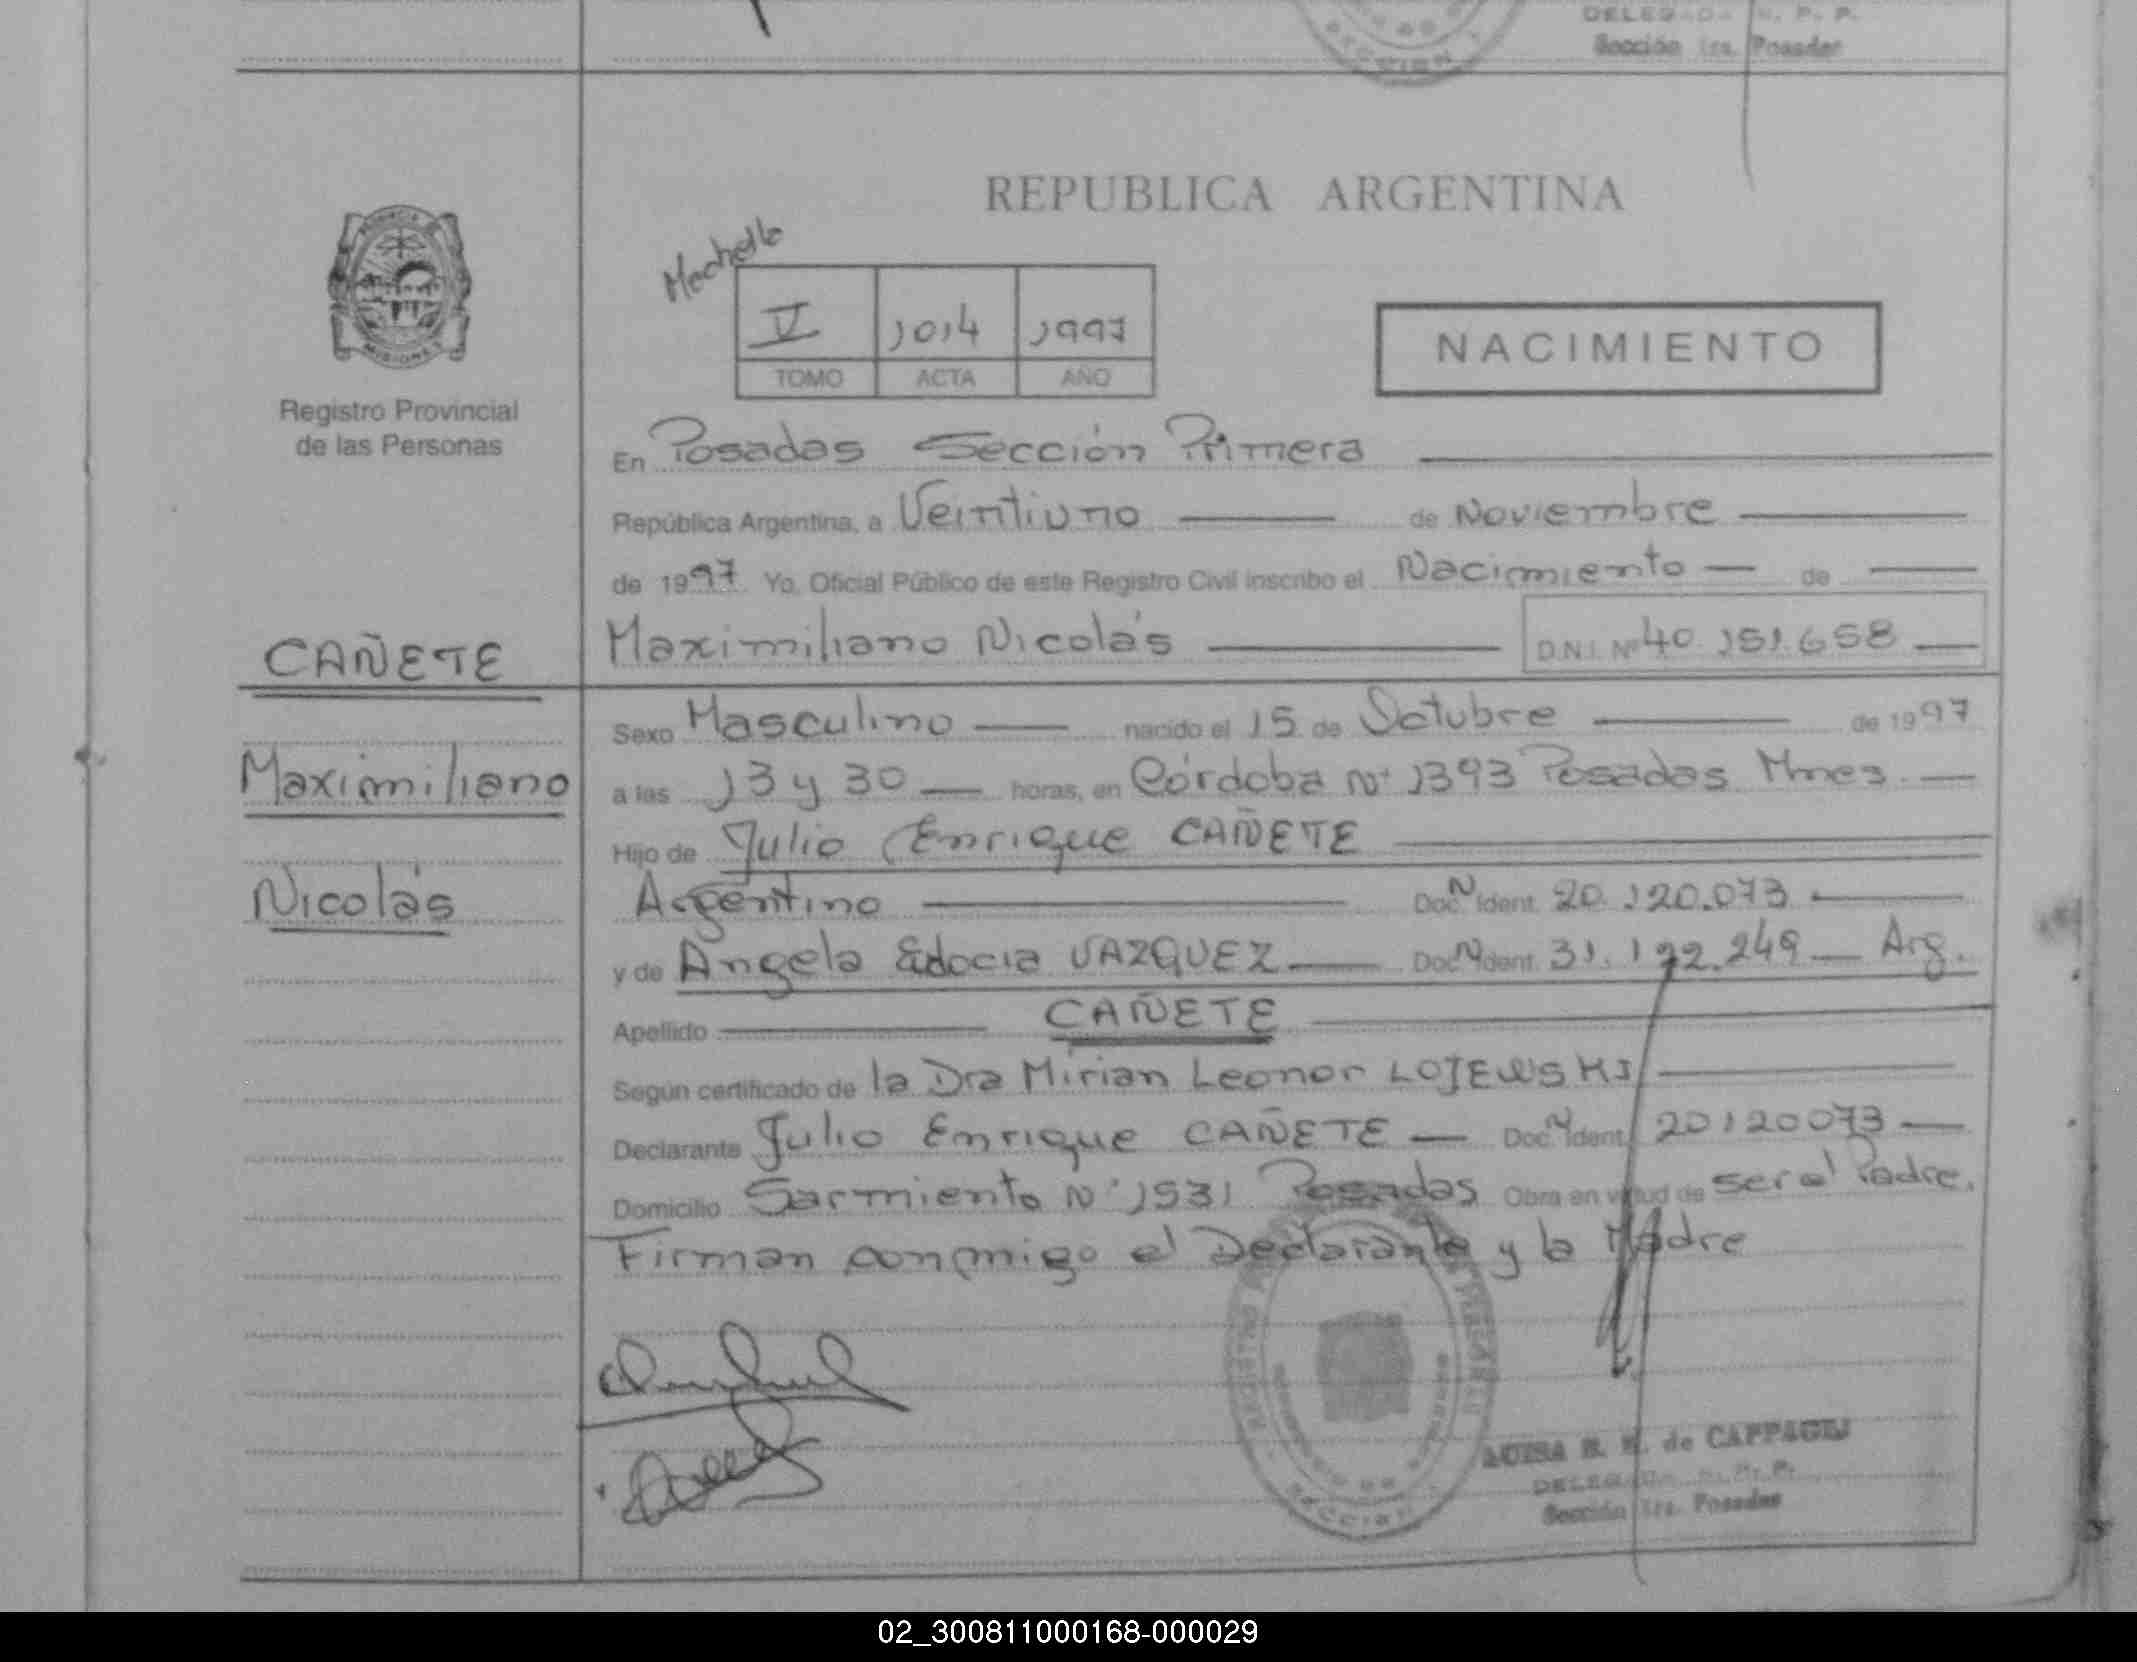 DELEGADA R. P. P.
Sección 1ra. Posadas
SECCION 1
REPUBLICA ARGENTINA
PROVINCIA
MISIONES
Registro Provincial
de las Personas
V 1014 1997
TOMO ACTA AÑO
NACIMIENTO
En Posadas Sección Primera
República Argentina, a Veintiuno de Noviembre
de 1997 Yo, Oficial Público de este Registro Civil inscribo el Nacimiento de
CAÑETE
Maximiliano Nicolás D.N.I. Nº 40.151.658
Maximiliano
Nicolás
Sexo Masculino nacido el 15 de Octubre de 1997
a las 13 y 30 horas, en Córdoba Nº 1393 Posadas Mnes
Hijo de Julio Enrique CAÑETE
Argentino Doc. N Ident. 20.120.073
y de Angela Edocia VAZQUEZ Doc. N Ident. 31.192.249 Arg.
Apellido CAÑETE
Según certificado de la Dra Mirian Leonor LOJEWSKI
Declarante Julio Enrique CAÑETE Doc. N Ident. 20120073
Domicilio Sarmiento Nº 1531 Posadas Obra en virtud de ser el Padre.
Firman conmigo el Declarante y la Madre
SECCION 1
LUISA de
DELEGADA R. P. P.
Sección 1ra. Posadas
02_300811000168-000029